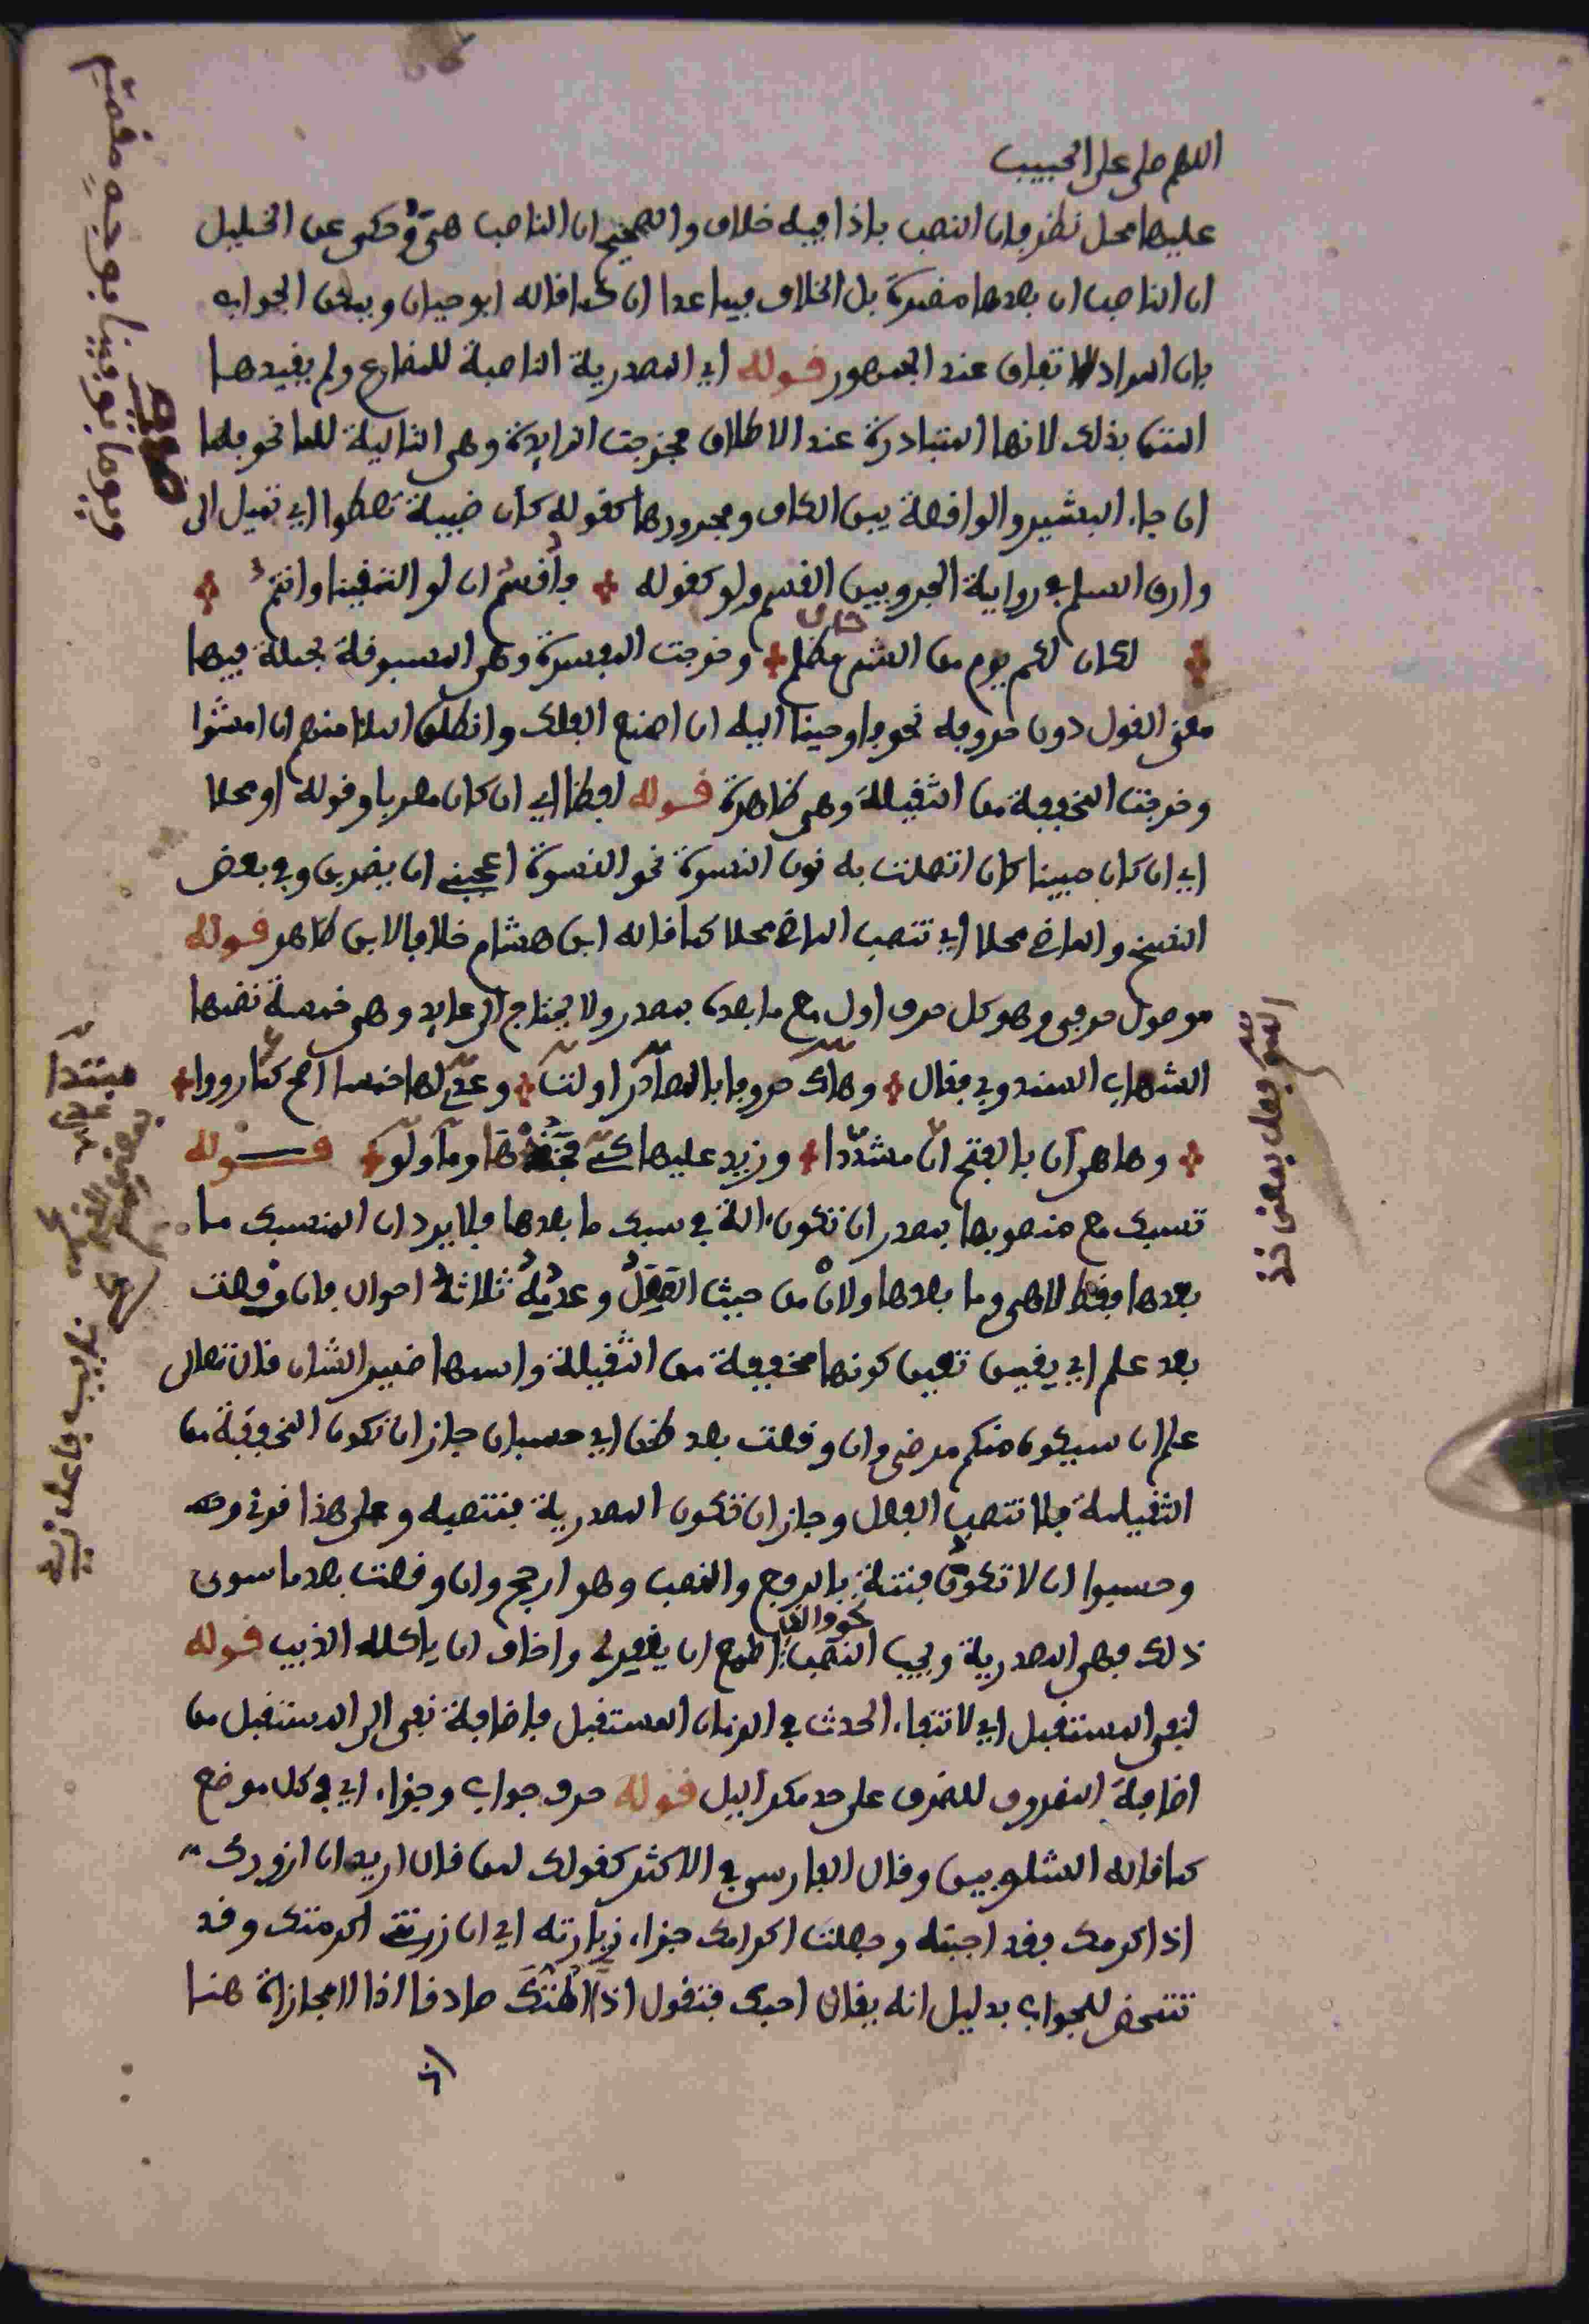 اللهم صلى على الحبيب
عليها محل نظر فإن النصب باذا فيه خلاف والصحيح ان الناصب هي وحكى عن الخليل
ان الناصب ان بعدها مضمرة بل الخلاف فيما عدا ان كما قاله ابو حيان ويمكن الجواب
بان المراد الاتفاق عند الجمهور قوله اي المصدرية الناصبة للمضارع ولم يقيدها
المتن بذلك لانها المتبادرة عند الاطلاق فخرجت الزايدة وهي التالية للما نحو فلما
ان جاء البشير والواقعة بين الكاف ومجرورها كقوله كأن ضبية تعطوا اي تميل الى
وارق السلم في رواية الجر وبين القسم ولو كقوله فأقسم ان لو التقينا وانتم
لكان لكم يوم من الشر مظلم وخرجت المفسرة وهي المسبوقة بجملة فيها
معنى القول دون حروفه نحو فاوحينا اليه ان اصنع الفلك وانطلق الملأ منهم ان امشوا
وخرجت المخففة من الثقيلة وهي ظاهرة قوله لفظا اي ان كان معربا وقوله او محلا
اي ان كان مبينا كان اتصلت به نون النسوة نحو النسوة اعجبني ان يضربن وفي بعض
النسخ والماضي محلا اي تنصب الماضي محلا كما قاله ابن هشام خلافا لابن طاهر قوله
موصول حرفي وهو كل حرف اول مع ما بعده بمصدر ولا يحتاج الى عايد وهي خمسة نضمها
الشهاب السندوبي فقال وهاك حروفا بالمصادر اولت وعدي لها خمسا اصح كما رووا
وها هي ان بالفتح ان مشددا وزيد عليها كي فخذها وما ولو قوله
تسبك مع منصوبها بمصدر ان تكون الة في سبك ما بعدها فلا يرد ان المنسبك ما
بعدها فقط لا هي وما بعدها ولان من حيث العمل وعدمه ثلاثة احوال فان وقعت
بعد علم اي يقين تعين كونها مخففة من الثقيلة واسمها ضمير الشان قال تعالى
علم ان سيكون منكم مرضى وان وقعت بعد ظن اي حسبان جاز ان تكون المخففة من
الثقيلة فلا تنصب الفعل وجاز ان تكون المصدرية فتنصبه وعلى هذا قوله
وحسبوا ان لا تكون فتنة بالرفع والنصب وهو ارجح وان وقعت بعد ما سوى
ذلك فهي المصدرية ويجب النصب نحو والذي اطمع ان يغفر لي واخاف ان ياكله الذيب قوله
لنفي المستقبل اي لانتفاء الحدث في الزمان المستقبل فاضافة نفي الى المستقبل من
اضافة المضروف للضرف على حد مكر الليل قوله حرف جواب وجزاء اي في كل موضع
كما قاله الشلوبين وقال الفارسي في الاكثر كقولك لمن قال اريد ان ازورك
اذا اكرمك فقد اجبته وجعلت اكرامك جزاء زيارته اي ان زرتني اكرمتك وقد
تتمحض للجواب بدليل انه يقال احبك فتقول اذا اظنك صادقا اذ لا مجازاة هنا
ويوما توفينا بوجه مقسم
فعل بمعنى خذ
مبتدا